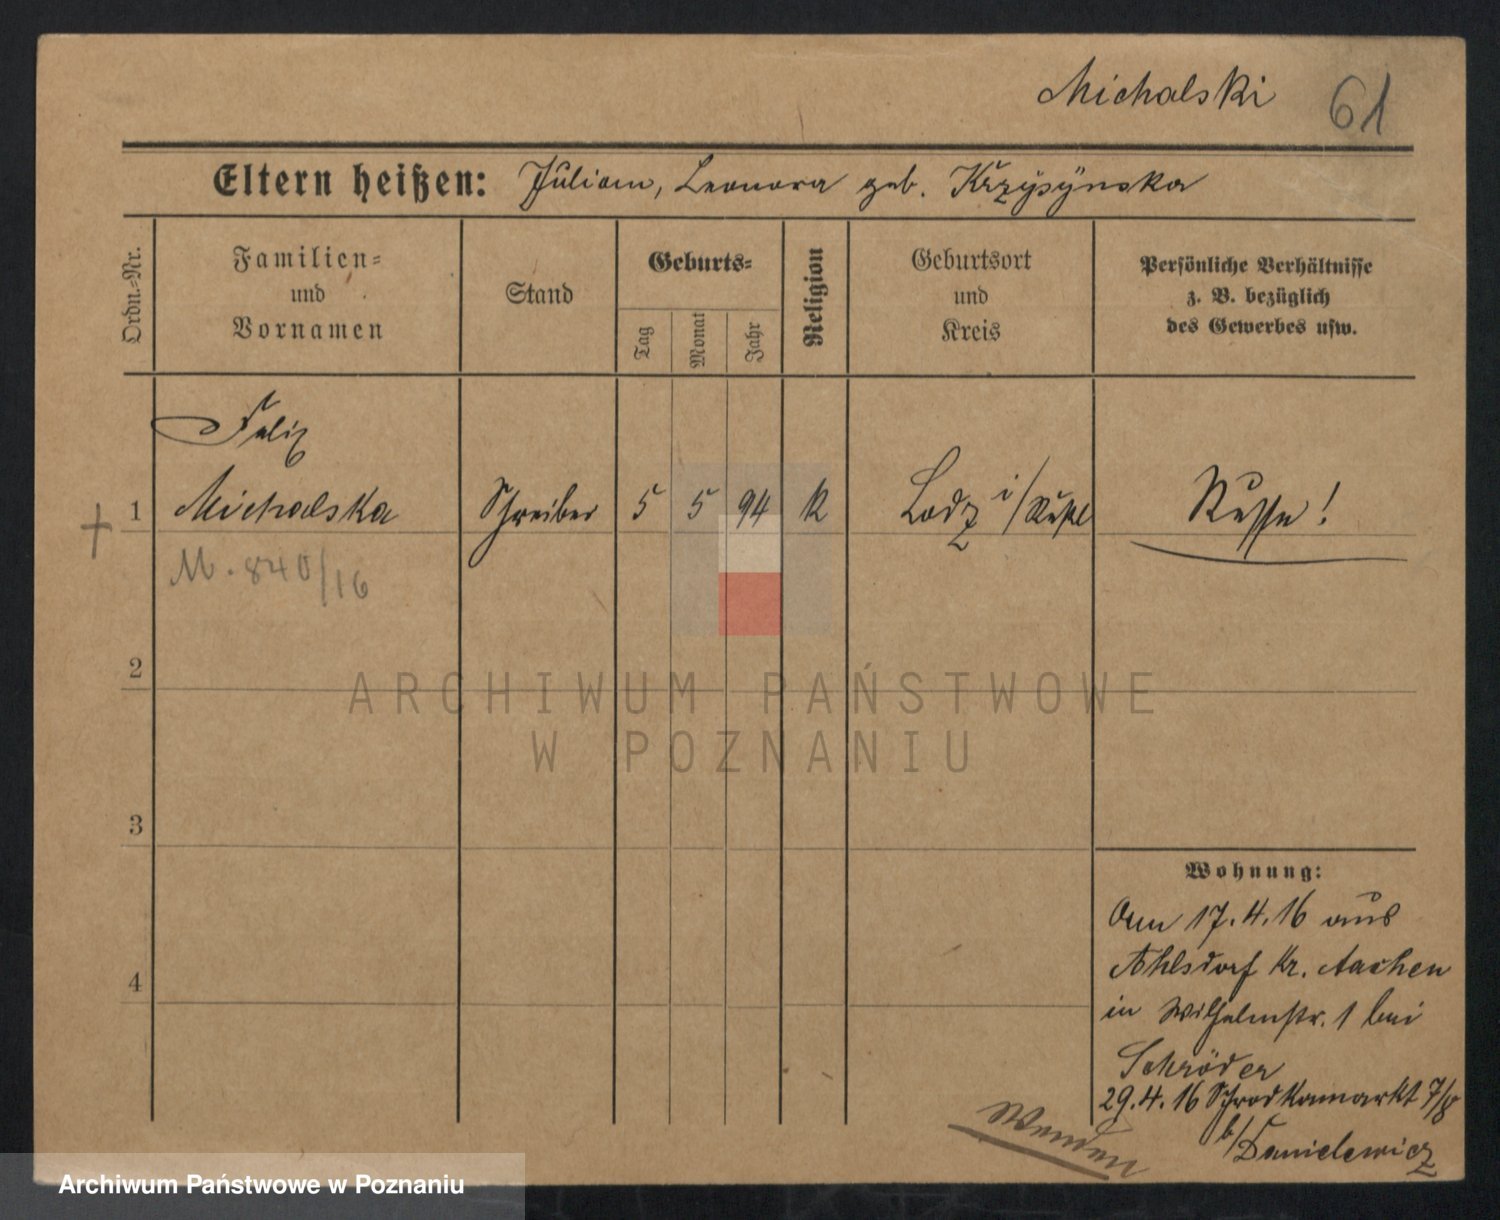 Michalski 61
Eltern heißen: Julian, Leonora geb. Krzysynska
Ordn.-Nr.
Familien-
und
Vornamen
Stand
Geburts-
Tag
Monat
Jahr
Religion
Geburtsort
und
Kreis
Persönliche Verhältnisse
z. B. bezüglich
des Gewerbes usw.
Felix
+ 1 Michalska Schreiber 5 5 94 K Lodz i/ Russe!
M. 840/16
2
ARCHIWUM PAŃSTWOWE
W POZNANIU
3
Wohnung:
4
Am 17.4.16 aus
Ahlsdorf Kr. Aachen
in Wilhelmstr. 1 bei
Schröder
29.4.16 Schrodkamarkt 7/8
b/Danielewicz
Wenden
Archiwum Państwowe w Poznaniu